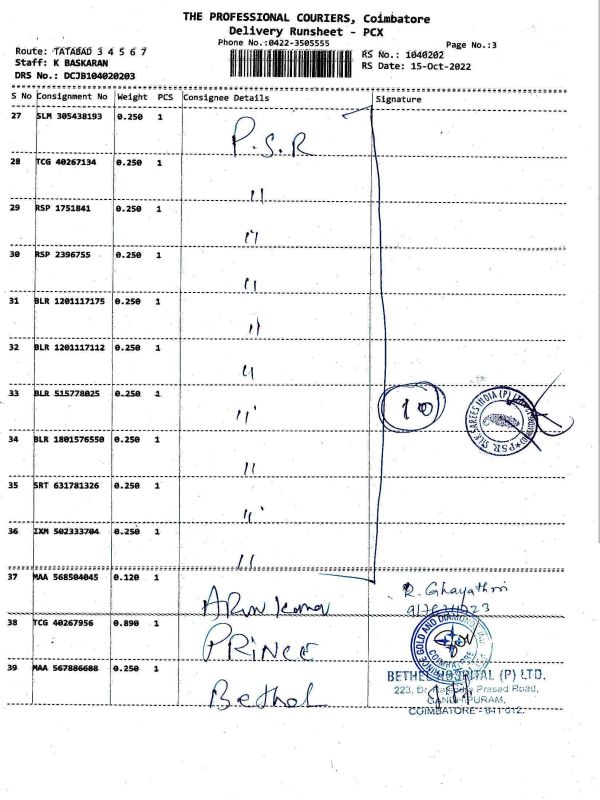 THE PROFESSIONAL COURIERS, Coimbatore
Delivery Runsheet - PCX
Phone No.:0422-3505555
Page No.:3
Route: TATABAD 3 4 5 6 7
Staff: K BASKARAN
DRS No.: DCJB104020203
RS No.: 1040202
RS Date: 15-Oct-2022
S No Consignment No Weight PCS Consignee Details Signature
27 SLM 305438193 0.250 1
P.S.R
28 TCG 40267134 0.250 1
"
29 RSP 1751841 0.250 1
"
30 RSP 2396755 0.250 1
"
31 BLR 1201117175 0.250 1
"
32 BLR 1201117112 0.250 1
"
33 BLR 515778025 0.250 1
"
10
PSR SILK SAREES INDIA (P)
34 BLR 1801576550 0.250 1
"
35 SRT 631781326 0.250 1
"
36 IXM 502333704 0.250 1
"
37 MAA 568504045 0.120 1
Arun kumar
R. Ghayathri
38 TCG 40267956 0.890 1
PRINCE
PRINCE GOLD AND DIAMOND
COIMBATORE
39 MAA 567886688 0.250 1
Bethel
BETHEL HOSPITAL (P) LTD.
223, Dr. Rajendra Prasad Road,
GANDHIPURAM,
COIMBATORE - 641 012.